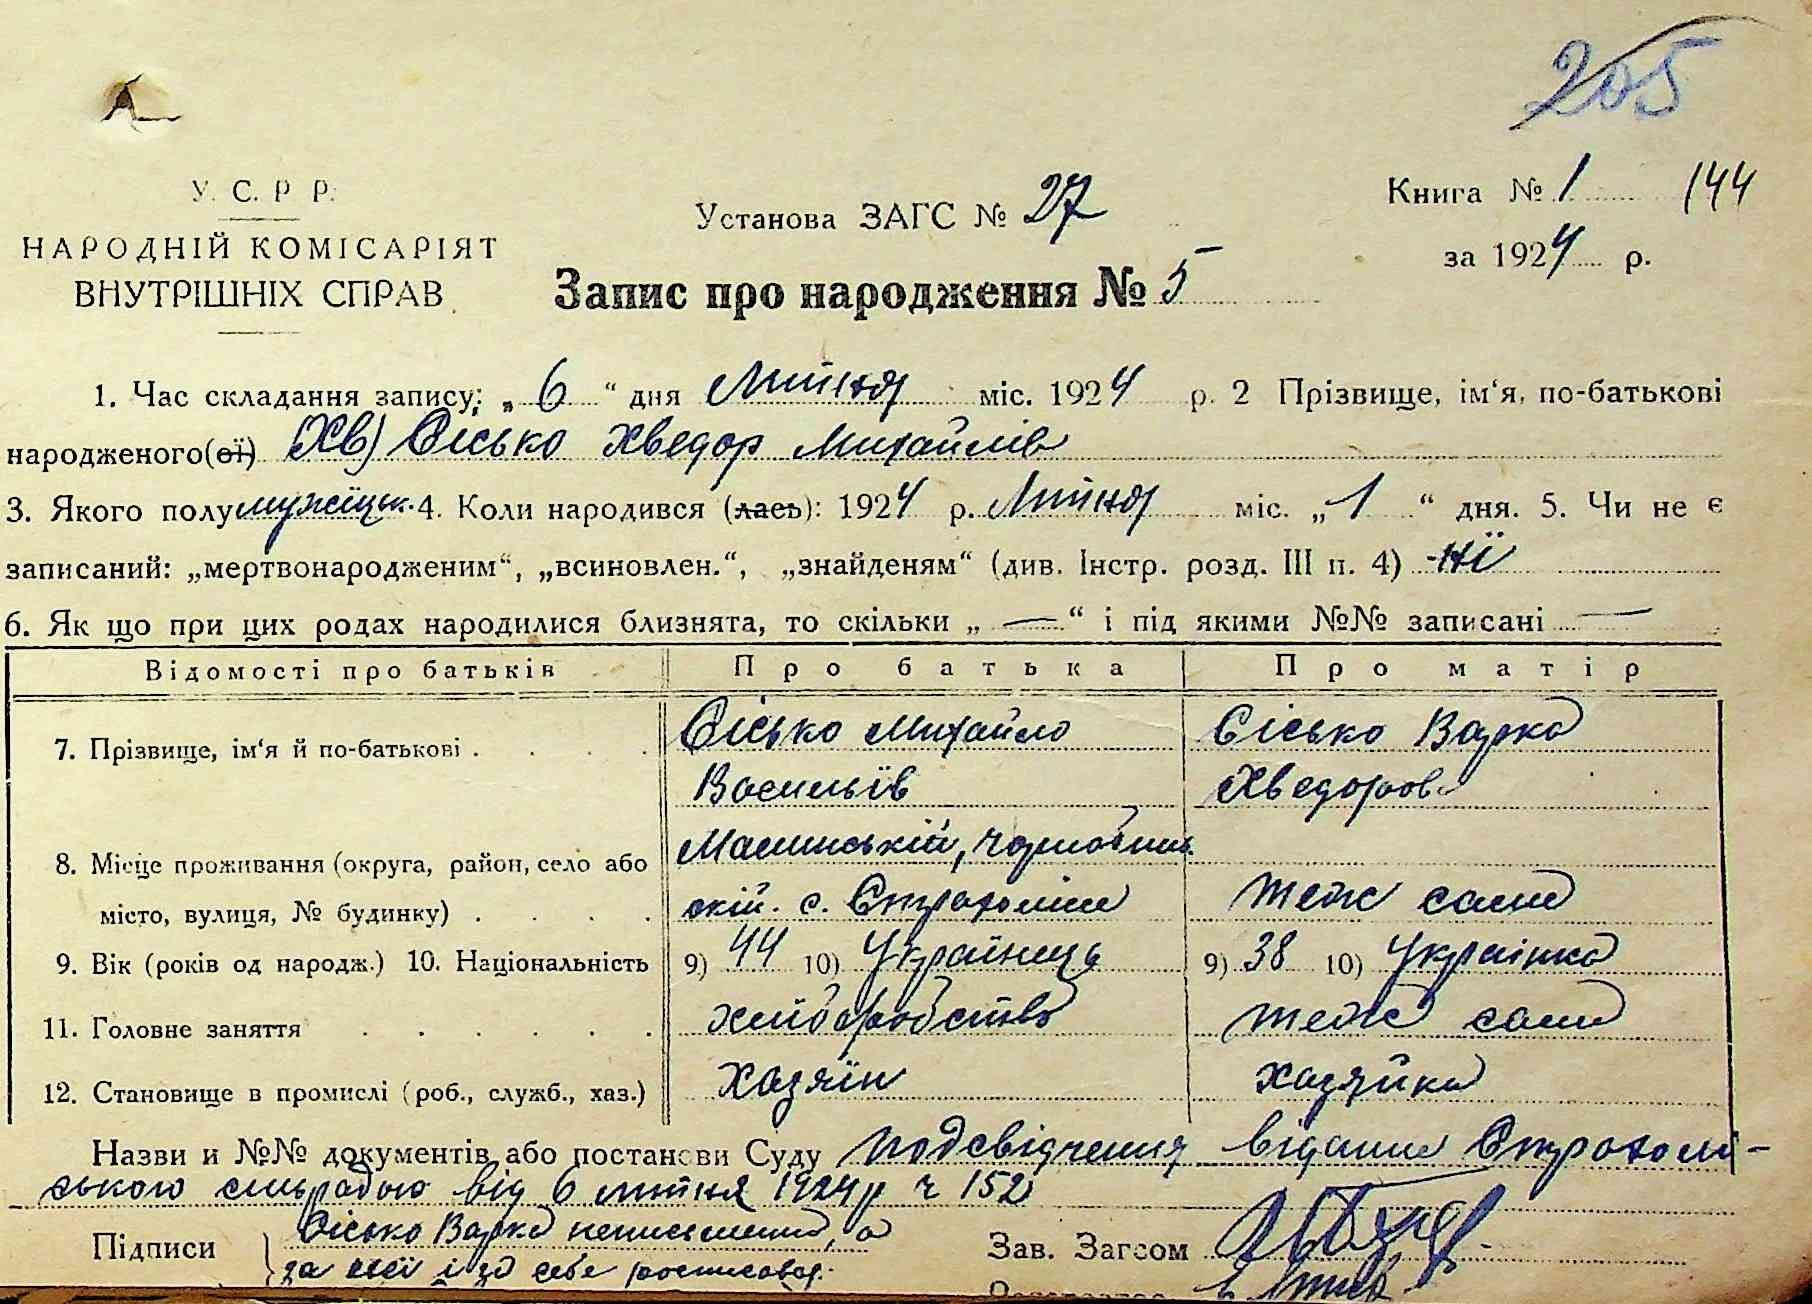 205
У. С. Р. Р.
НАРОДНІЙ КОМІСАРІЯТ
ВНУТРІШНІХ СПРАВ
Установа ЗАГС № 27
Книга № 1 144
за 1924 р.
Запис про народження № 5
1. Час складання запису: „6“ дня Лютня міс. 1924 р. 2 Прізвище, ім‘я, по-батькові
народженого(ої) (Хв) Сісько Хведор Михайлів
3. Якого полу мужеськ. 4. Коли народився (лась): 1924 р. Лютня міс. „1“ дня. 5. Чи не є
записаний: „мертвонародженим“, „всиновлен.“, „знайденям“ (див. Інстр. розд. III п. 4) ні
6. Як що при цих родах народилися близнята, то скільки „—“ і під якими №№ записані —
Відомості про батьків Про батька Про матір
7. Прізвище, ім‘я й по-батькові . . . . Сісько Михайло Сісько Варка
Васильїв Хведоров
8. Місце проживання (округа, район, село або Малинській, Чорнобиль-
місто, вулиця, № будинку) . . . . ській. с. Страхоліси теж саме
9. Вік (років од народж.) 10. Національність 9) 44 10) Українець 9) 38 10) Українка
11. Головне заняття . . . . . . хлиборобство теж саме
12. Становище в промислі (роб., служб., хаз.) Хазяїн хазяйка
Назви и №№ документів або постанови Суду подсвідчення відання Страхолі-
ського сільрадою від 6 лютня 1924 р ч 152
Підписи Сісько Варка неписьменна, а
за неї і за себе росписався
Зав. Загсом